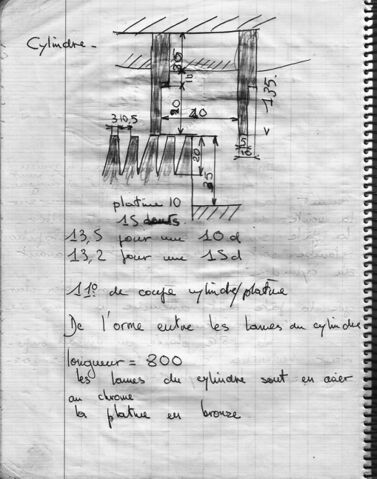 Cylindre-
35
10
20
40
1,35
310,5
20
35
5
10
platine 10
15 dents
13,5 pour une 10d
13,2 pour une 15d
11° de coupe cylindre/platine
De l'orme entre les lames du cylindre
longueur = 800
les lames du cylindre sont en acier
au chrome
la platine en bronze.